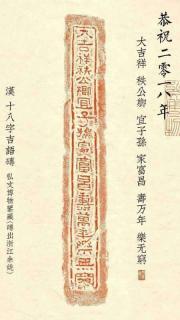 恭祝二零一八年
大吉祥 秩公卿 宜子孫 家富昌 壽万年 樂无窮
大吉祥秩公卿宜子孫家富昌壽萬年樂無窮
漢 十八字吉語磚
弘文博物館藏(磚出浙江余姚)